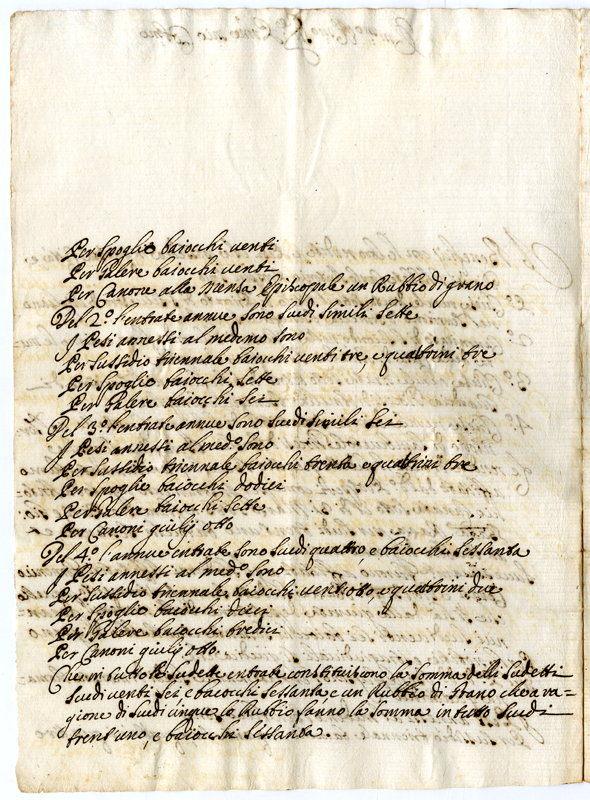 Per spoglio baiocchi venti
Per Galere baiocchi venti
Per Canone alla Mensa Episcopale un Rubbio di grano
Del 2.º l'entrate annue sono scudi simili sette
I Pesi annessi al medemo sono
Per sussidio triennale baiocchi venti tre, e quattrini tre
Per spoglio baiocchi sette
Per Galere baiocchi sei
Del 3.º l'entrate annue sono scudi simili sei
I Pesi annessi al med.º sono
Per sussidio triennale baiocchi trenta e quattrini tre
Per spoglio baiocchi dodici
Per Galere baiocchi sette
Per Canoni giulij otto
Del 4.º l'annue entrate sono scudi quattro, e baiocchi sessanta
I Pesi annessi al med.º sono
Per sussidio triennale baiocchi ventiotto, e quattrini due
Per spoglio baiocchi dieci
Per Galere baiocchi tredici
Per Canoni giulij otto.
Che in tutto le sudette entrate constituiscono la somma delli sudetti
scudi venti sei e baiocchi sessanta e un Rubbio di Grano che a ra=
gione di scudi cinque lo Rubbio fanno la somma in tutto scudi
trent'uno, e baiocchi sessanta.